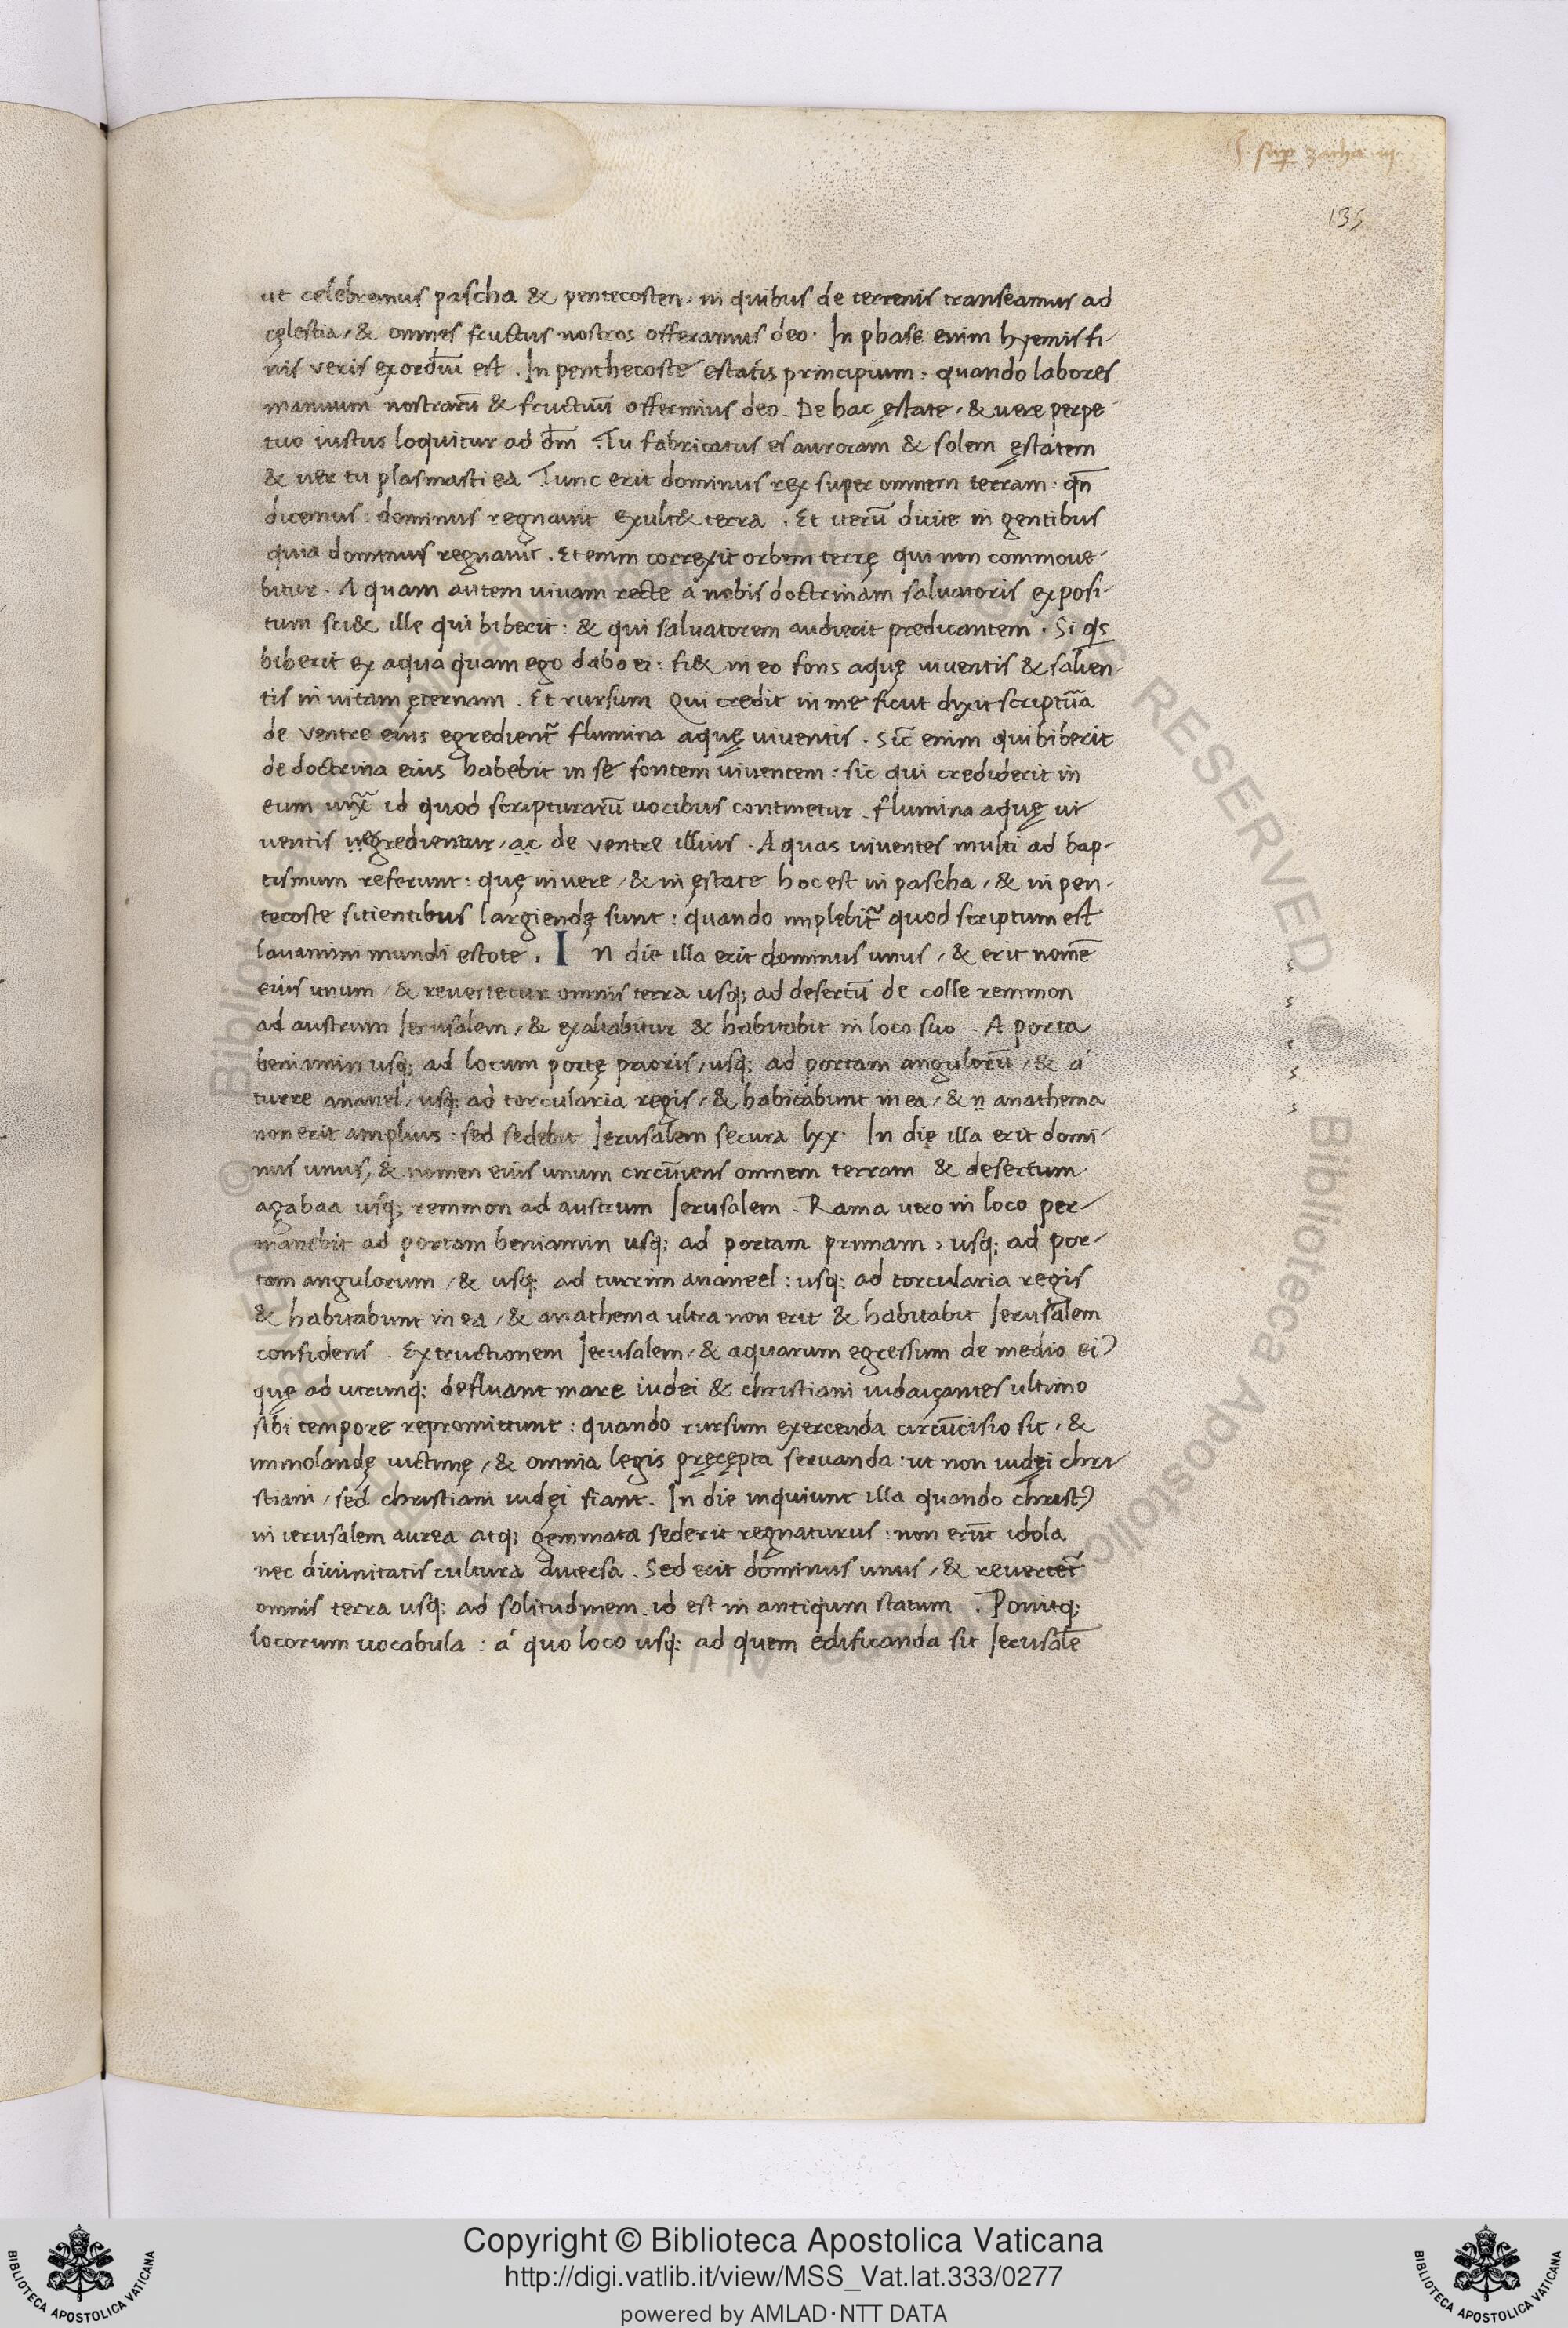 J. sup zacha. iii.
135
ut celebremus pascha & pentecosten, in quibus de terrenis transeamus ad
cęlestia, & omnes fructus nostros offeramus deo. In phase enim hyemis fi-
nis veris exordiū est . In penthecoste estatis principium: quando labores
manuum nostrarū & fructuū offerimus deo. De hac ęstate, & vere perpe
tuo iustus loquitur ad dm̄ . Tu fabricatus es auroram & solem ęstatem
& uer tu plasmasti ea Tunc erit dominus rex super omnem terram: qn̄
dicemus: dominus regnauit exult& terra . Et iterū dicite in gentibus
quia dominus regnauit . Etenim correxit orbem terrę qui non commoue-
bitur. Aquam autem uiuam recte a nobis doctrinam saluatoris exposi-
tum sci& ille qui biberit: & qui saluatorem audierit predicantem . Si qs
biberit ex aqua quam ego dabo ei: fi& in eo fons aquę viuentis & salien-
tis in uitam ęternam . Et rursum Qui credit in me sicut dixit scriptūa
de ventre eius egredient᷑ flumina aquę viuentis . Sic̄ enim qui biberit
de doctrina eius habebit in se fontem viuentem: sic qui crediderit in
eum iuxᷓ id quod scripturarū uocibus continetur . flumina aquę ui
uentis ṇẹgredientur, ạc̣ de ventre illius . Aquas viuentes multi ad bap-
tismum referunt: quę in vere, & in ęstate hoc est in pascha, & in pen-
tecoste sitientibus largiendę sunt: quando implebit᷑ quod scriptum est
lauamini mundi estote . In die illa erit dominus unus, & erit nomē
eius unum, & reuertetur omnis terra usq; ad desertū de colle remmon
ad austrum Ierusalem, & exaltabitur & habitabit in loco suo . A porta
beniamin usq; ad locum portę prioris, usq; ad portam angulorū, & á
turre ananel, usq; ad torcularia regis, & habitabunt in ea, & ṇ anathema
non erit amplius: sed sedebit Ierusalem secura lxx. In die illa erit domi-
nus unus, & nomen eius unum circūiens omnem terram & desertum
agabaa usq; remmon ad austrum Ierusalem . Rama uero in loco per-
manebit ad portam beniamin usq; ad portam primam, usq; ad por-
tam angulorum, & usq; ad turrim ananeel: usq; ad torcularia regis
& habitabunt in ea, & anathema ultra non erit & habitabit Ierusalem
confidens . Extructionem Ierusalem, & aquarum egressum de medio eiꝰ
quę ad utrunq; defluant mare iudei & christiani iudaiçantes ultimo
sibi tempore repromittunt: quando rursum exercenda circūcisio sit, &
immolandę uictimę, & omnia legis pręcępta seruanda: ut non iudęi chri
stiani, sed christiani iudęi fiant . In die inquiunt illa quando christꝰ
in ierusalem aurea atq; gemmata sederit regnaturus: non erūt idola
nec diuinitatis cultura diuersa . Sed erit dominus unus, & reuertet᷑
omnis terra usq; ad solitudinem . id est in antiqum statum . Ponitq;
locorum uocabula: á quo loco usq; ad quem edificanda sit Ierusalē
Copyright © Biblioteca Apostolica Vaticana
http://digi.vatlib.it/view/MSS_Vat.lat.333/0277
powered by AMLAD·NTT DATA